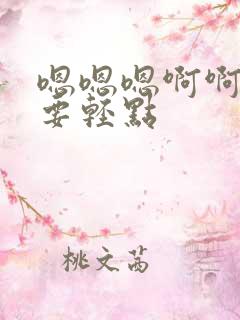 嗯嗯嗯啊啊
要轻點
桃文茜